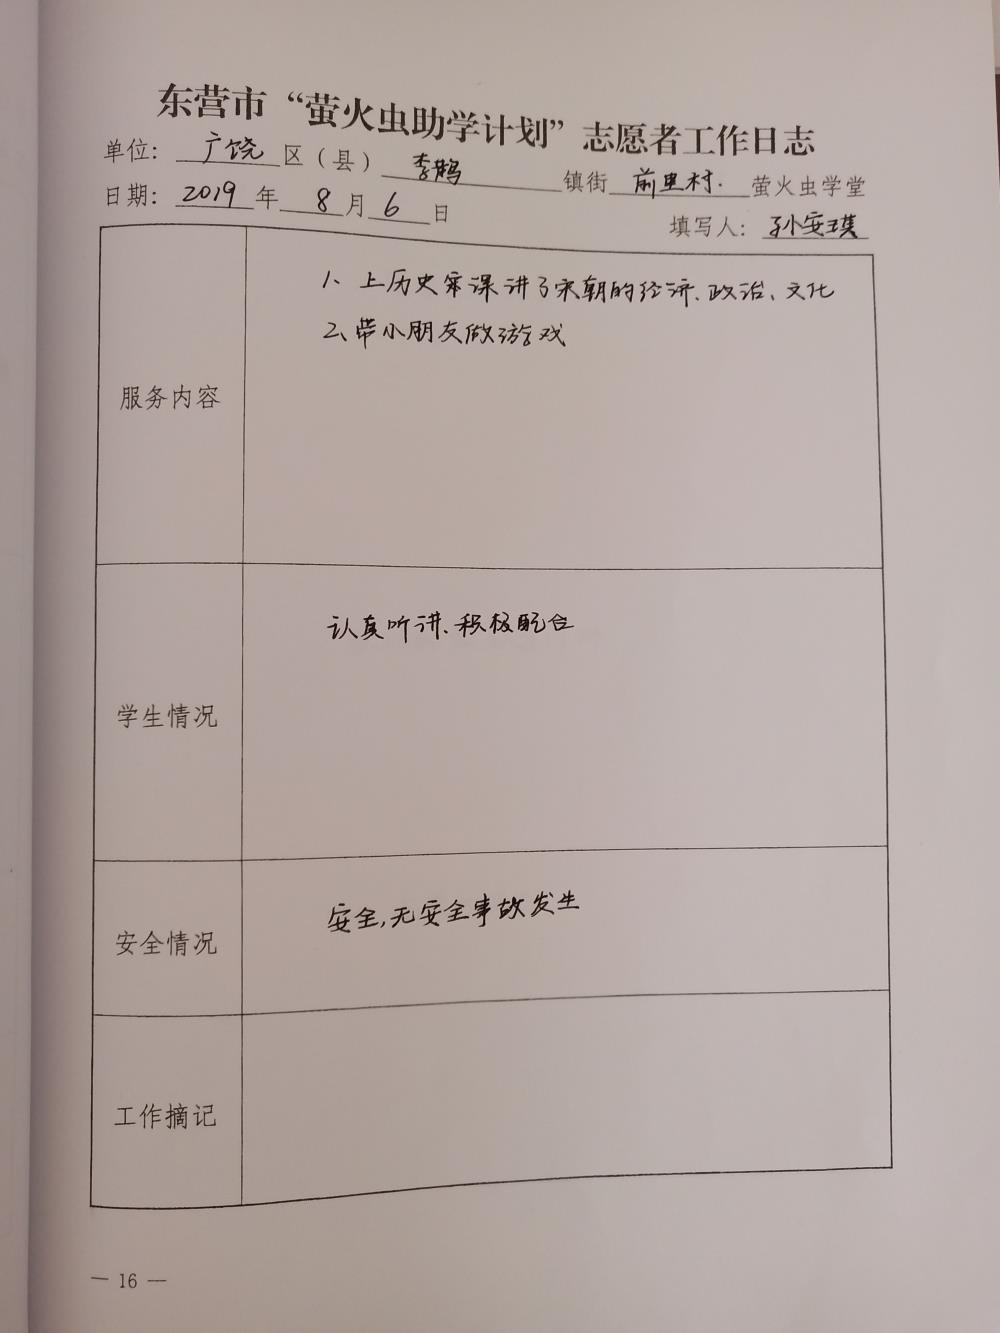 东营市“萤火虫助学计划”志愿者工作日志
单位：广饶区（县）李鹊镇街前里村.萤火虫学堂
日期：2019年8月6日
填写人：孙安琪
服务内容
1、上历史 课讲了宋朝的经济、政治、文化
2、带小朋友做游戏
学生情况
认真听讲、积极配合
安全情况
安全,无安全事故发生
工作摘记
— 16 —